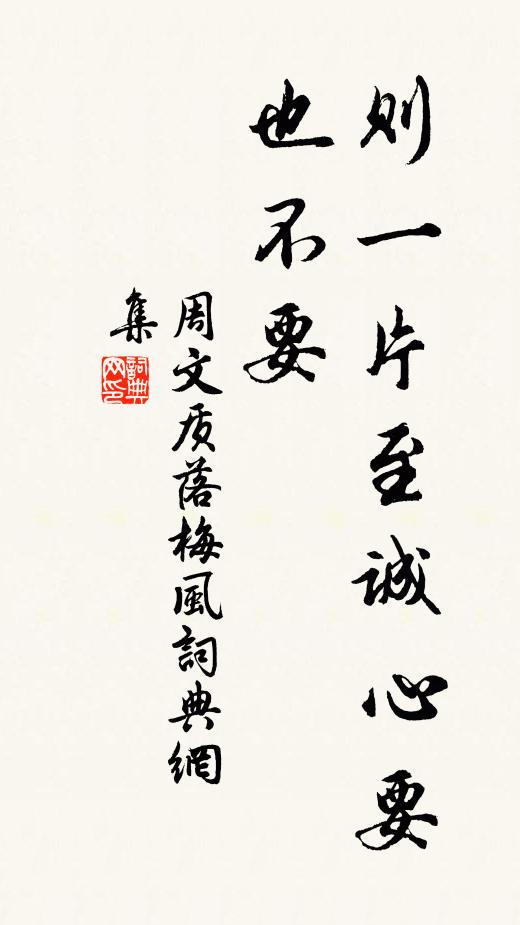 则一片至诚心要
也不要
周文质落梅風詞典網
集
詞典
网印